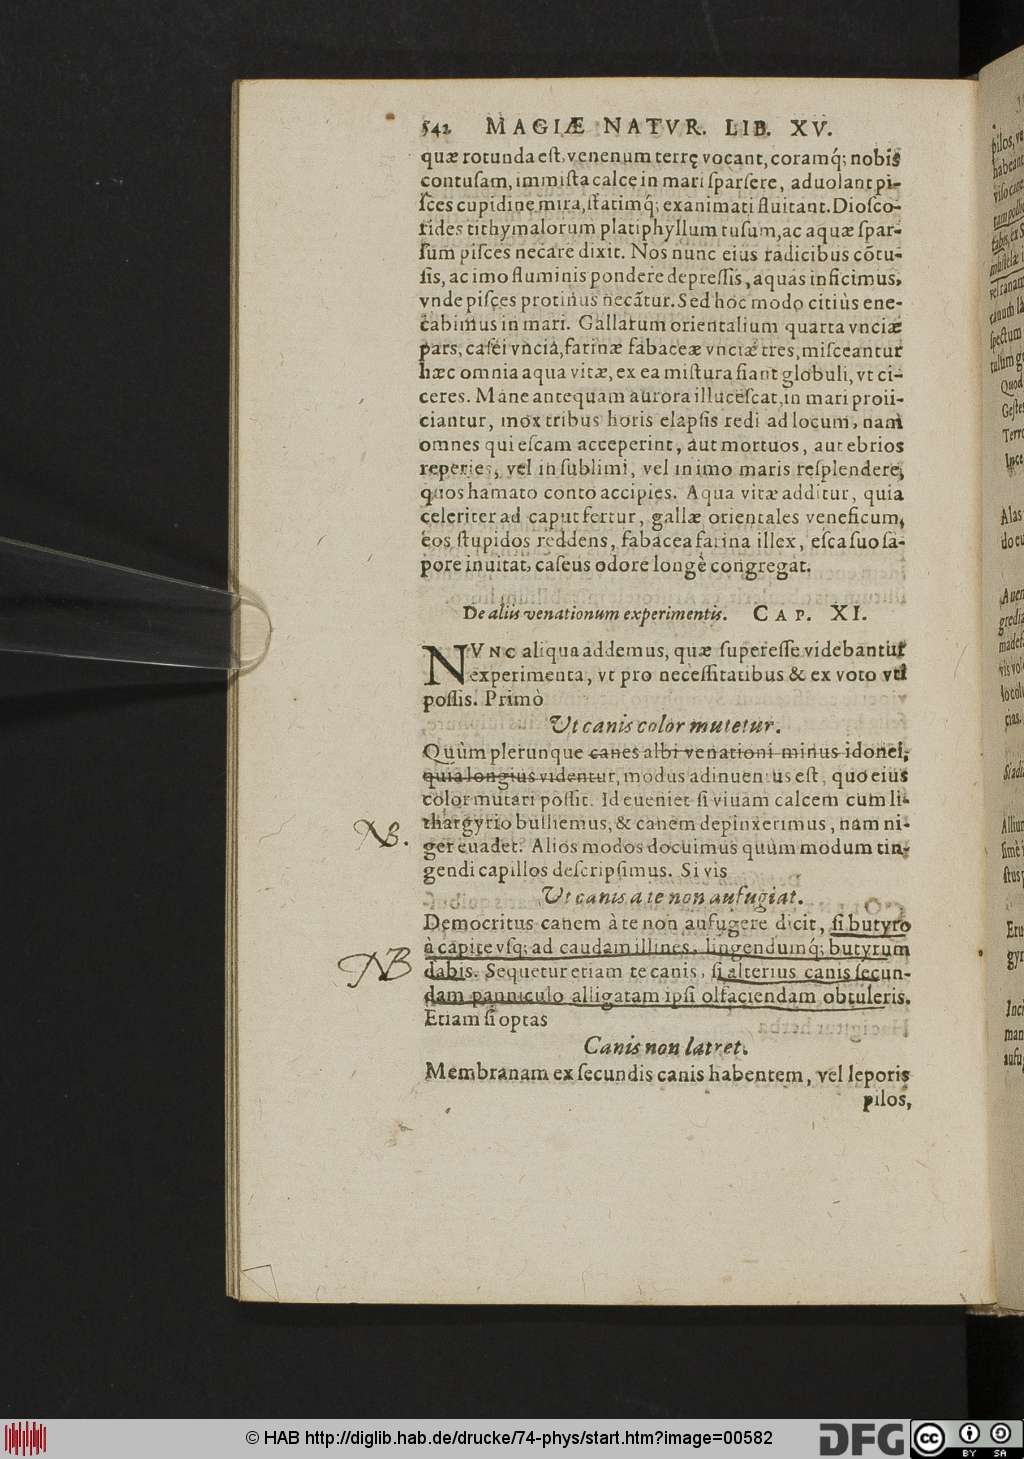 542 MAGIÆ NATVR. LIB. XV.
quæ rotunda est, venenum terrę vocant, coramq́; nobis
contusam, immista calce in mari sparsere, aduolant pi-
sces cupidine mira, statimq́; exanimati fluitant. Diosco-
rides tithymalorum platiphyllum tusum, ac aquæ spar-
sum pisces necare dixit. Nos nunc eius radicibus cōtu-
sis, ac imo fluminis pondere depressis, aquas inficimus,
vnde pisces protinus necātur. Sed hoc modo citiùs ene-
cabimus in mari. Gallarum orientalium quarta vnciæ
pars, casei vncia, farinæ fabaceæ vnciæ tres, misceantur
hæc omnia aqua vitæ, ex ea mistura fiant globuli, vt ci-
ceres. Mane antequam aurora illucescat, in mari proii-
ciantur, mox tribus horis elapsis redi ad locum, nam
omnes qui escam acceperint, aut mortuos, aut ebrios
reperies, vel in sublimi, vel in imo maris resplendere,
quos hamato conto accipies. Aqua vitæ additur, quia
celeriter ad caput fertur, gallæ orientales veneficum,
eos stupidos reddens, fabacea farina illex, esca suo sa-
pore inuitat, caseus odore longè congregat.
De aliis venationum experimentis. CAP. XI.
NVNC aliqua addemus, quæ superesse videbantur
experimenta, vt pro necessitatibus & ex voto vti
possis. Primò
Vt canis color mutetur.
Quùm plerunque canes albi venationi minus idonei,
quia longius videntur, modus adinuentus est, quo eius
color mutari possit. Id eueniet si viuam calcem cum li-
thargyrio bulliemus, & canem depinxerimus, nam ni-
NB.
ger euadet. Alios modos docuimus quùm modum tin-
gendi capillos descripsimus. Si vis
Vt canis a te non aufugiat.
Democritus canem à te non aufugere dicit, si butyro
à capite vsq; ad caudam illines, lingendumq́; butyrum
NB
dabis. Sequetur etiam te canis, si alterius canis secun-
dam panniculo alligatam ipsi olfaciendam obtuleris.
Etiam si optas
Canis non latret.
Membranam ex secundis canis habentem, vel leporis
pilos,
© HAB http://diglib.hab.de/drucke/74-phys/start.htm?image=00582
DFG
cc
BY SA